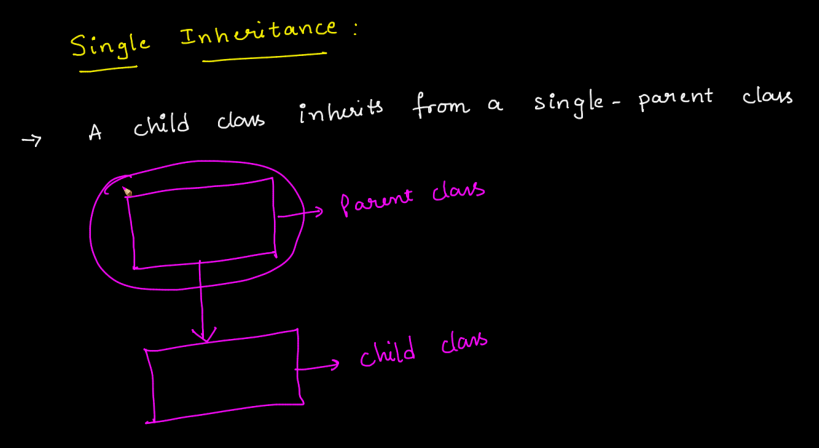 Single Inheritance :
→ A child class inherits from a single - parent class
Parent class
child class